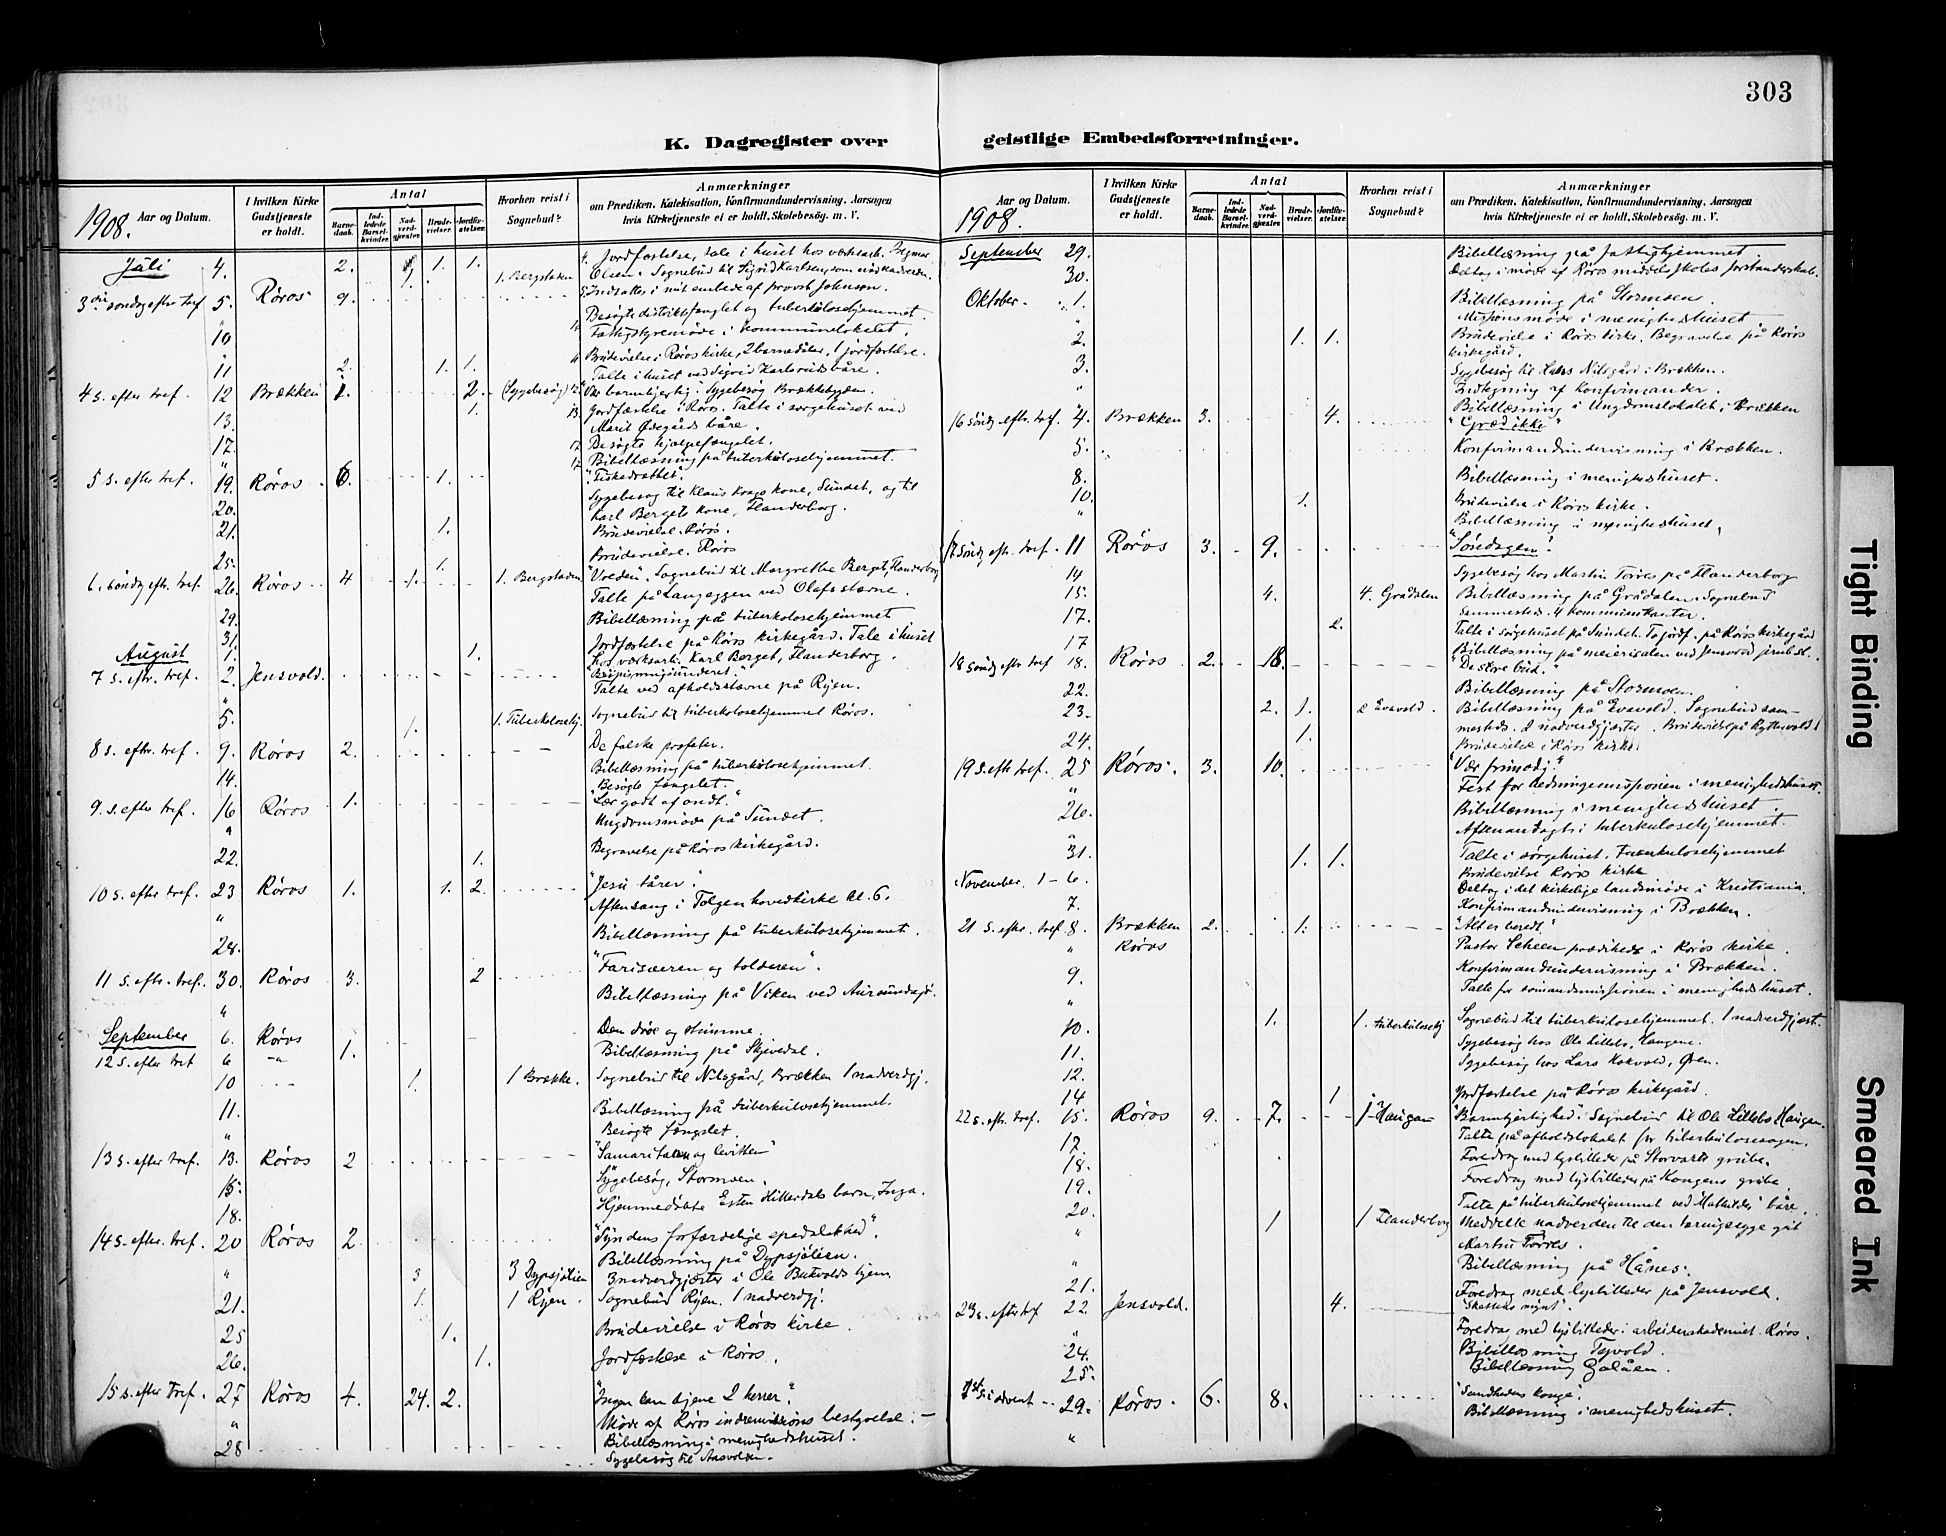 303
K. Dagregister over geistlige Embedsforretninger.
1908. Aar og Datum.
I hvilken Kirke Gudstjeneste er holdt.
Antal
Barnedaab.
Indledede Barselkvinder.
Nadverdgjester.
Brudevielser.
Jordfæstelser.
Hvorhen reist i Sognebud?
Anmærkninger
om Prædiken. Katekisation, Konfirmandundervisning. Aarsagen
hvis Kirketjeneste ei er holdt. Skolebesøg. m. V.
Juli 4. 2. 1. 1. 1. Jordfæstelse, tale i huset hos
Olsen. Sognebud til Sigrid Karlsen, som nød nadverden.
1. Bergstaden
3die søndag efter tref. 5. Røros 9. Indsattes i mit embede af provst Johnson.
Besøgte distriktsfænglet og tuberkulosehjemmet.
10 Fattigstyremøde i kommunelokalet.
11 2. 1. 1. Brudevielse i Røros kirke, 2 barnedåb, 1 jordfæstelse.
Talte i huset ved Sigrid Karlsens båre.
4 s. efter tref. 12 Brækken 1. 2. (Sygebesøg) Sygebesøg Brækkebygden.
13. 1. Jordfæstelse i Røros. Talte i sørgehuset ved
Marit Ødegårds båre.
17. Besøgte hjælpefængslet.
" Bibellæsning på tuberkulosehjemmet.
5 s. efter tref. 19. Røros 6. 1. "Fiskedrættet".
20. Sygebesøg til Klaus kone, Sundet, og til
Karl Bergets kone, Flanderborg.
21. 1. Brudevielse. Røros.
25. 1. Brudevielse. Røros
6. søndag efter tref. 26. Røros 4 1. 1. Bergstaden "Vreden". Sognebud til Margrethe Berget, Flanderborg
Talte på Langeggen ved Olafsstævne.
29. Bibellæsning på tuberkulosehjemmet
31.
August 1. 1. Jordfæstelse på Røros kirkegård. Tale i huset
hos Karl Berget, Flanderborg.
7 s. eftr. tref. 2. Jensvold. "Bespisningsunderet."
" Talte ved afholdsstævne på Ryen.
5. 1. 1. Tuberkulosehj. Sognebud til tuberkulosehjemmet Røros.
8 s. eftr. tref. 9. Røros 2. De falske profeter.
14. Bibellæsning på tuberkulosehjemmet.
Besøgte fængslet.
9. s. efter tref. 16 Røros 1. "Lær godt af ondt."
" Ungdomsmøde på Sundet.
22. 1. Begravelse på Røros kirkegård.
10 s. efter tref. 23 Røros 1. 1. 2. "Jesu tårer."
" Aftensang i Tolgen hovedkirke kl. 6.
28. Bibellæsning på tuberkulosehjemmet.
11 s. eftr. tref. 30. Røros 3. 2 "Farisæeren og tolderen".
" Bibellæsning på Viken ved Aursundsjø.
September 6. Røros Den døve og stumme.
12 s. efter tref 6 -"- 1. Bibellæsning på Skjevdal.
10 1. 1 Brække. Sognebud til Nilsgård, Brækken 1 nadverdgj.
11. Bibellæsning på tuberkulosehjemmet.
" Besøgte fængslet.
13 s. efter tref. 13. Røros 2 "Samaritanen og levitten"
15. Sygebesøg, Stormoen.
18. Hjemmedøbte Esten Hitterdals barn, Inga.
14 s. eftr. tref. 20 Røros 2 "Syndens forfærdelige spedalskhed".
Bibellæsning på Dypsjølien.
" 3 3 Dypsjølien 3 nadverdgjæster i Ole Bukvolds hjem
21. 1. 1 Ryen. Sognebud Ryen. 1 nadverdgj.
25 1. Brudevielse i Røros kirke.
26. 1. Jordfæstelse i Røros.
15 s. efter tref. 27 Røros 4. 24. 2. "Ingen kan tjene 2 herrer".
" Møde af Røros indremissions bestyrelse.
28 Bibellæsning i menighedshuset.
Sygebesøg til
1908. Aar og Datum.
I hvilken Kirke Gudstjeneste er holdt.
Antal
Barnedaab.
Indledede Barselkvinder.
Nadverdgjester.
Brudevielser.
Jordfæstelser.
Hvorhen reist i Sognebud?
Anmærkninger
om Prædiken. Katekisation, Konfirmandundervisning. Aarsagen
hvis Kirketjeneste ei er holdt. Skolebesøg. m. V.
September 29. Bibellæsning på fattighjemmet
30. Deltog i møde af Røros middelskoles forstanderskab.
Oktober 1. Bibellæsning på Stormoen.
" Missionsmøde i menighedshuset
2. 1. 1. Brudevielse i Røros kirke. Begravelse på Røros
kirkegård.
3. Sygebesøg til Nilsgård i Brækken.
Indtegning af konfirmander.
" Bibellæsning i Ungdomslokalet i Brækken
16 sønd. eftr. tref. 4. Brækken 3. 4. "Græd ikke"
5. Konfirmandundervisning i Brækken.
8. Bibellæsning i menighedshuset.
10. 1. Brudevielse i Røros kirke.
" Bibellæsning i menighedshuset.
17 sønd. eftr. tref. 11 Røros 3. 9. "Søndagen".
14 Sygebesøg hos Martin Torres på Flanderborg
15. 4. 4. Grådalen Bibellæsning på Grådalen. Sognebud
sammesteds. 4 kommunikanter.
17. 2. Talte i sørgehuset på Sundet. To jordf. på Røros kirkegård
17 Bibellæsning på meierisalen ved Jensvold jernb.st.
18 sønd. eftr. tref 18. Røros 2. 18. "De store bud."
22. Bibellæsning på Stormoen.
23. 2. 1. 2 Evavold. Bibellæsning på Evavold. Sognebud sammesteds.
2 nadverdgjæster. Brudevielse på Ryttervold
24. 1. Brudevielse i Røros kirke.
19 s. eftr. tref. 25 Røros. 3. 10. "Vær frimodig."
" Fest for hedningemissionen i menighedshuset.
26. Bibellæsning i menighedshuset.
" Aftenandagt i tuberkulosehjemmet.
31. 1. 1. Talte i sørgehuset. Tuberkulosehjemmet
Brudevielse Røros kirke
November 1-6. Deltog i det kirkelige landsmøde i Kristiania.
7. Konfirmandundervisning i Brækken.
21 s. eftr. tref 8. Brækken 2. 1. "Alt er beredt."
" Røros Pastor Scheen prædikede i Røros kirke.
9. Konfirmandundervisning i Brækken.
" Talte for sømandsmissionen i menighedshuset.
10. 1. 1. tuberkulosehj Sognebud til tuberkulosehjemmet. 1 nadverdgjæst.
11. Sygebesøg hos Ole Lillebo, Haugen.
12. Sygebesøg hos Lars Kokvold, Øien.
14 1 Jordfæstelse på Røros kirkegård.
22 s. eftr. tref. 15. Røros 9. 7. 1 Haugan "Barmhjertighed". Sognebud til Ole Lillebo Haugan.
17. Talte på afholdslokalet for tuberkulosesagen.
18. Foredrag med lysbilleder på Storvarts grube.
19. Foredrag med lysbilleder på Kongens grube.
20. Talte på tuberkulosehjemmet ved Mathildes båre.
" 1 1 Flanderborg Meddelte nadverden til den
Martin Torres.
" Bibellæsning på Hånes.
21. Foredrag med lysbilleder på Jensvold.
23 s. efter tref 22. Jensvold. 4. "Skattens mynt".
" Foredrag med lysbilleder i arbeiderakademiet. Røros.
24. Bibellæsning Tyvold.
25. Bibellæsning Galåen.
1st s. i advent 29. Røros. 6. 8. "Sandhedens konge".
" Bibellæsning i menighedshuset.
Tight Binding
Smeared Ink